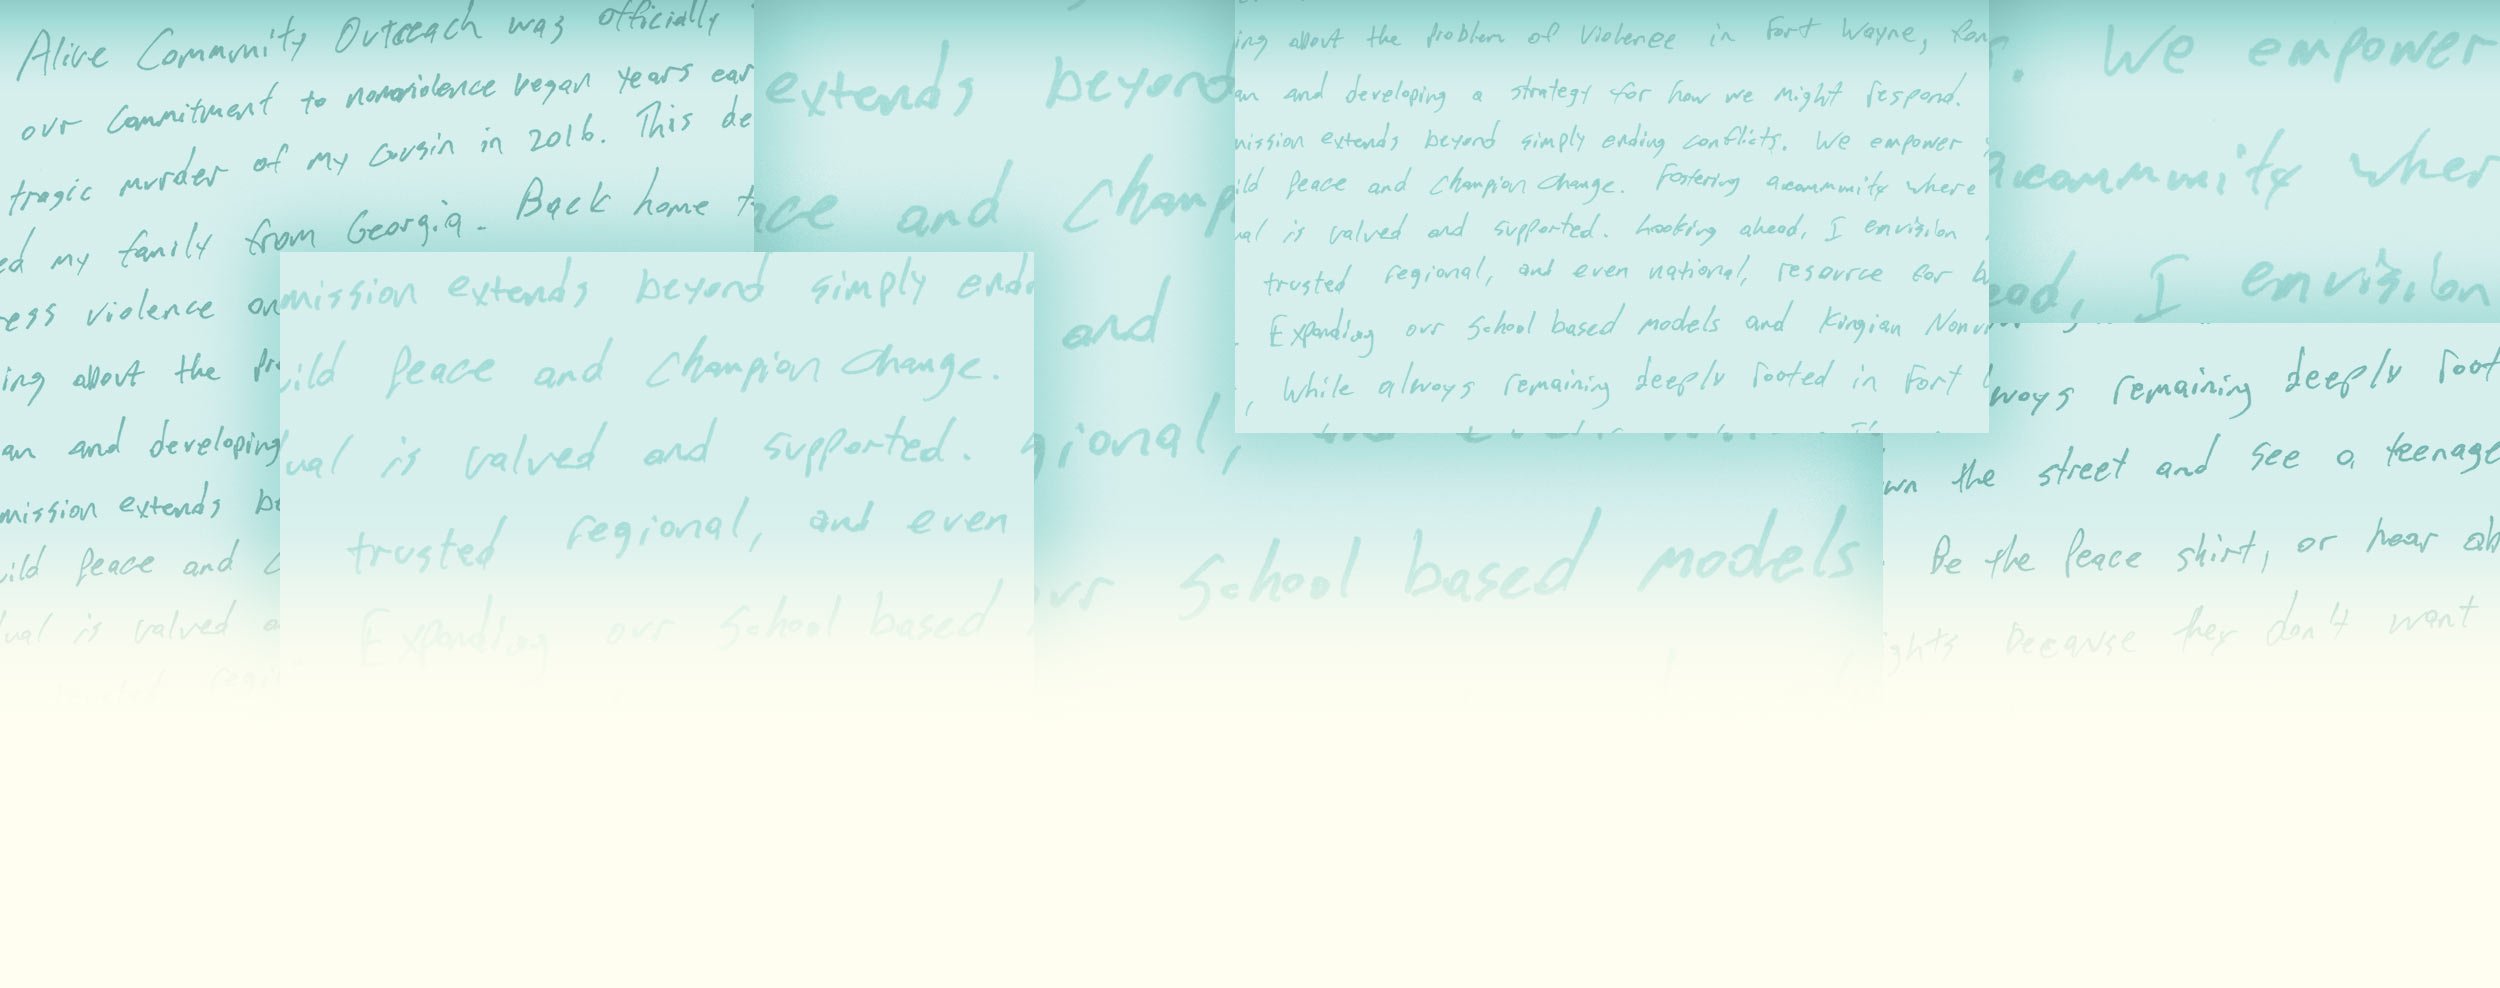 Alive Commmity Outreach was officially
our Commitment to nonviolence began years ear
tragic murder of my Cousin in 2016. This de
ed my family from Georgia. Back home t
ess violence on
ing about the pr
an and developing
mission extends be
ild peace and c
ual is valued a
trusted regi
extends beyond
ace and Champ
and
gional,
our School based models
mission extends beyond simply endi
ild peace and Champion Change.
ual is valued and supported.
trusted regional, and even
Expanding our School based
ing about the problem of Violence in Fort Wayne, Ron
an and developing a strategy for how we might respond.
mission extends beyond simply ending conflicts. We empower
ild peace and Champion Change. Fostering acommmity where
ual is valued and supported. Looking ahead, I envision
trusted regional, and even national, resource for b
Expanding our School based models and Kingian Nonvi
, While always remaining deeply rooted in Fort
. We empower
acommmity wher
ead, I envision
ways remaining deeply root
wn the street and see a teenage
Be the Peace shirt, or hear ab
ights because they don't want